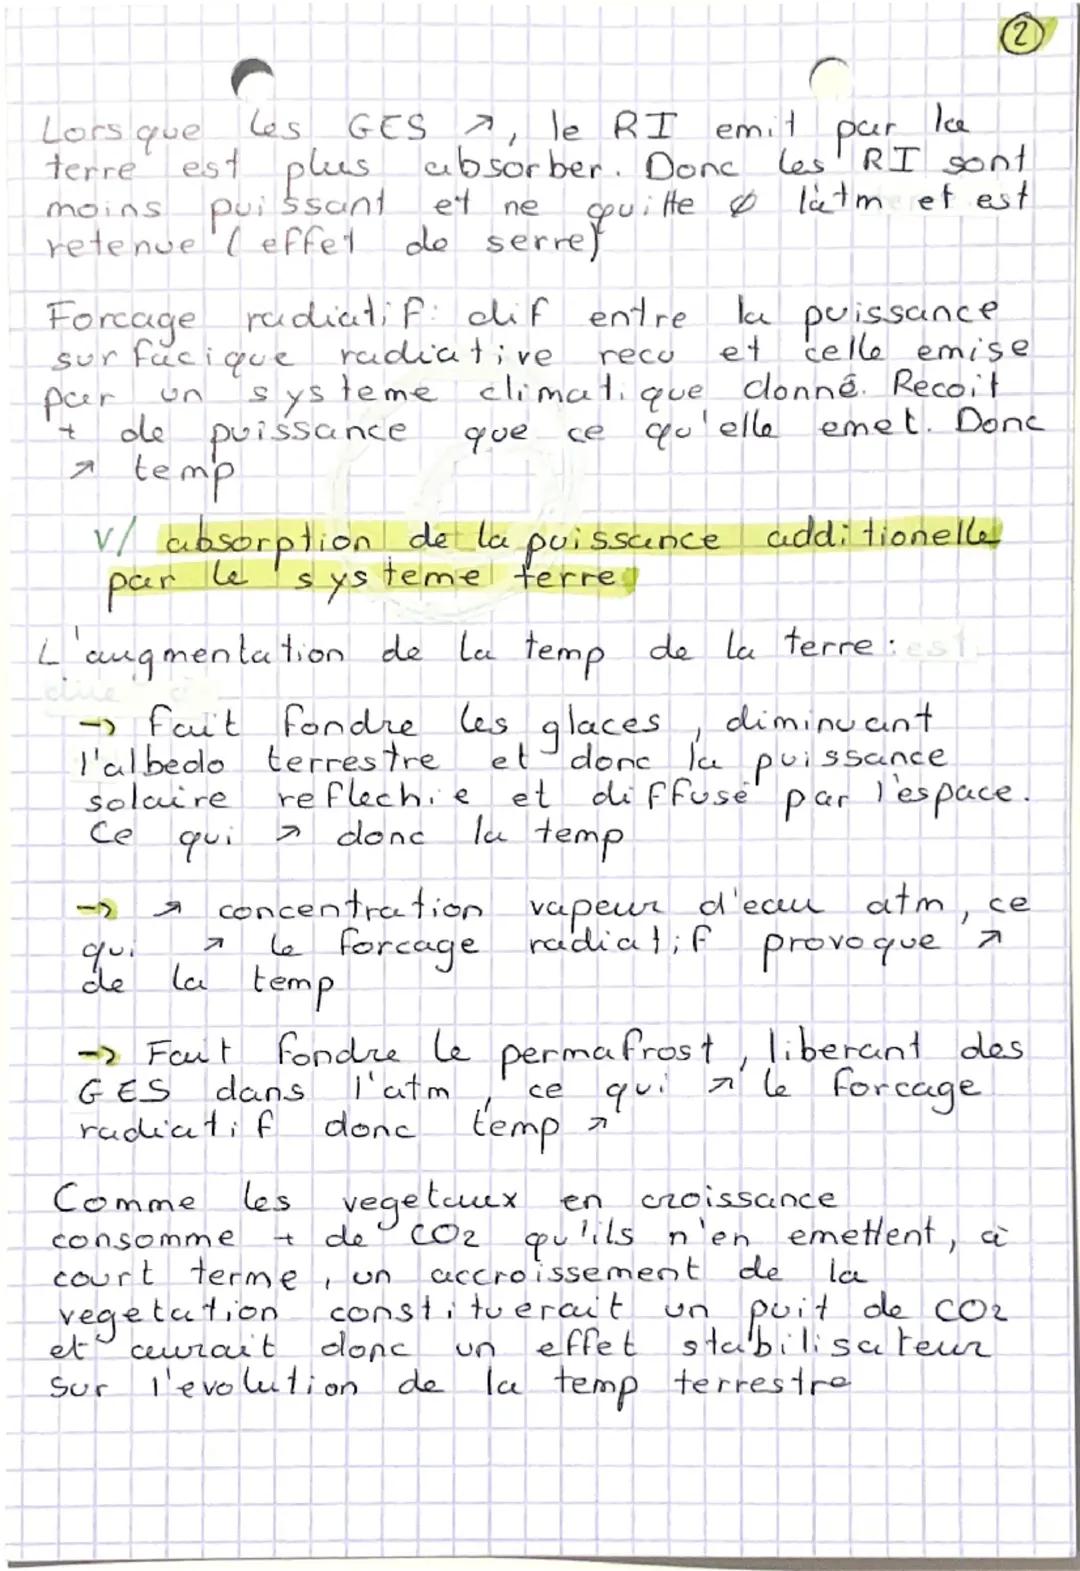 2
Lorsque les GES ↗, le RI emit par la
terre est plus absorber. Donc les RI sont
moins puissant et ne quitte ∅ l'atm et est
retenue (effet de serre)
Forcage radiatif: dif entre la puissance
surfacique radiative recu et celle emise
par un systeme climatique donné. Recoit
+ de puissance que ce qu'elle emet. Donc
↗ temp
V/ absorption de la puissance additionelle
par le systeme terre
L'augmentation de la temp de la terre : est
due à
→ fait fondre les glaces, diminuant
l'albedo terrestre et donc la puissance
solaire reflechie et diffusé par l'espace.
Ce qui ↗ donc la temp
→ ↗ concentration vapeur d'eau atm, ce
qui ↗ le forcage radiatif provoque ↗
de la temp
→ Fait fondre le permafrost, liberant des
GES dans l'atm, ce qui ↗ le forcage
radiatif donc temp ↗
Comme les vegetaux en croissance
consomme + de CO2 qu'ils n'en emettent, à
court terme, un accroissement de la
vegetation constituerait un puit de CO2
et aurait donc un effet stabilisateur
sur l'evolution de la temp terrestre